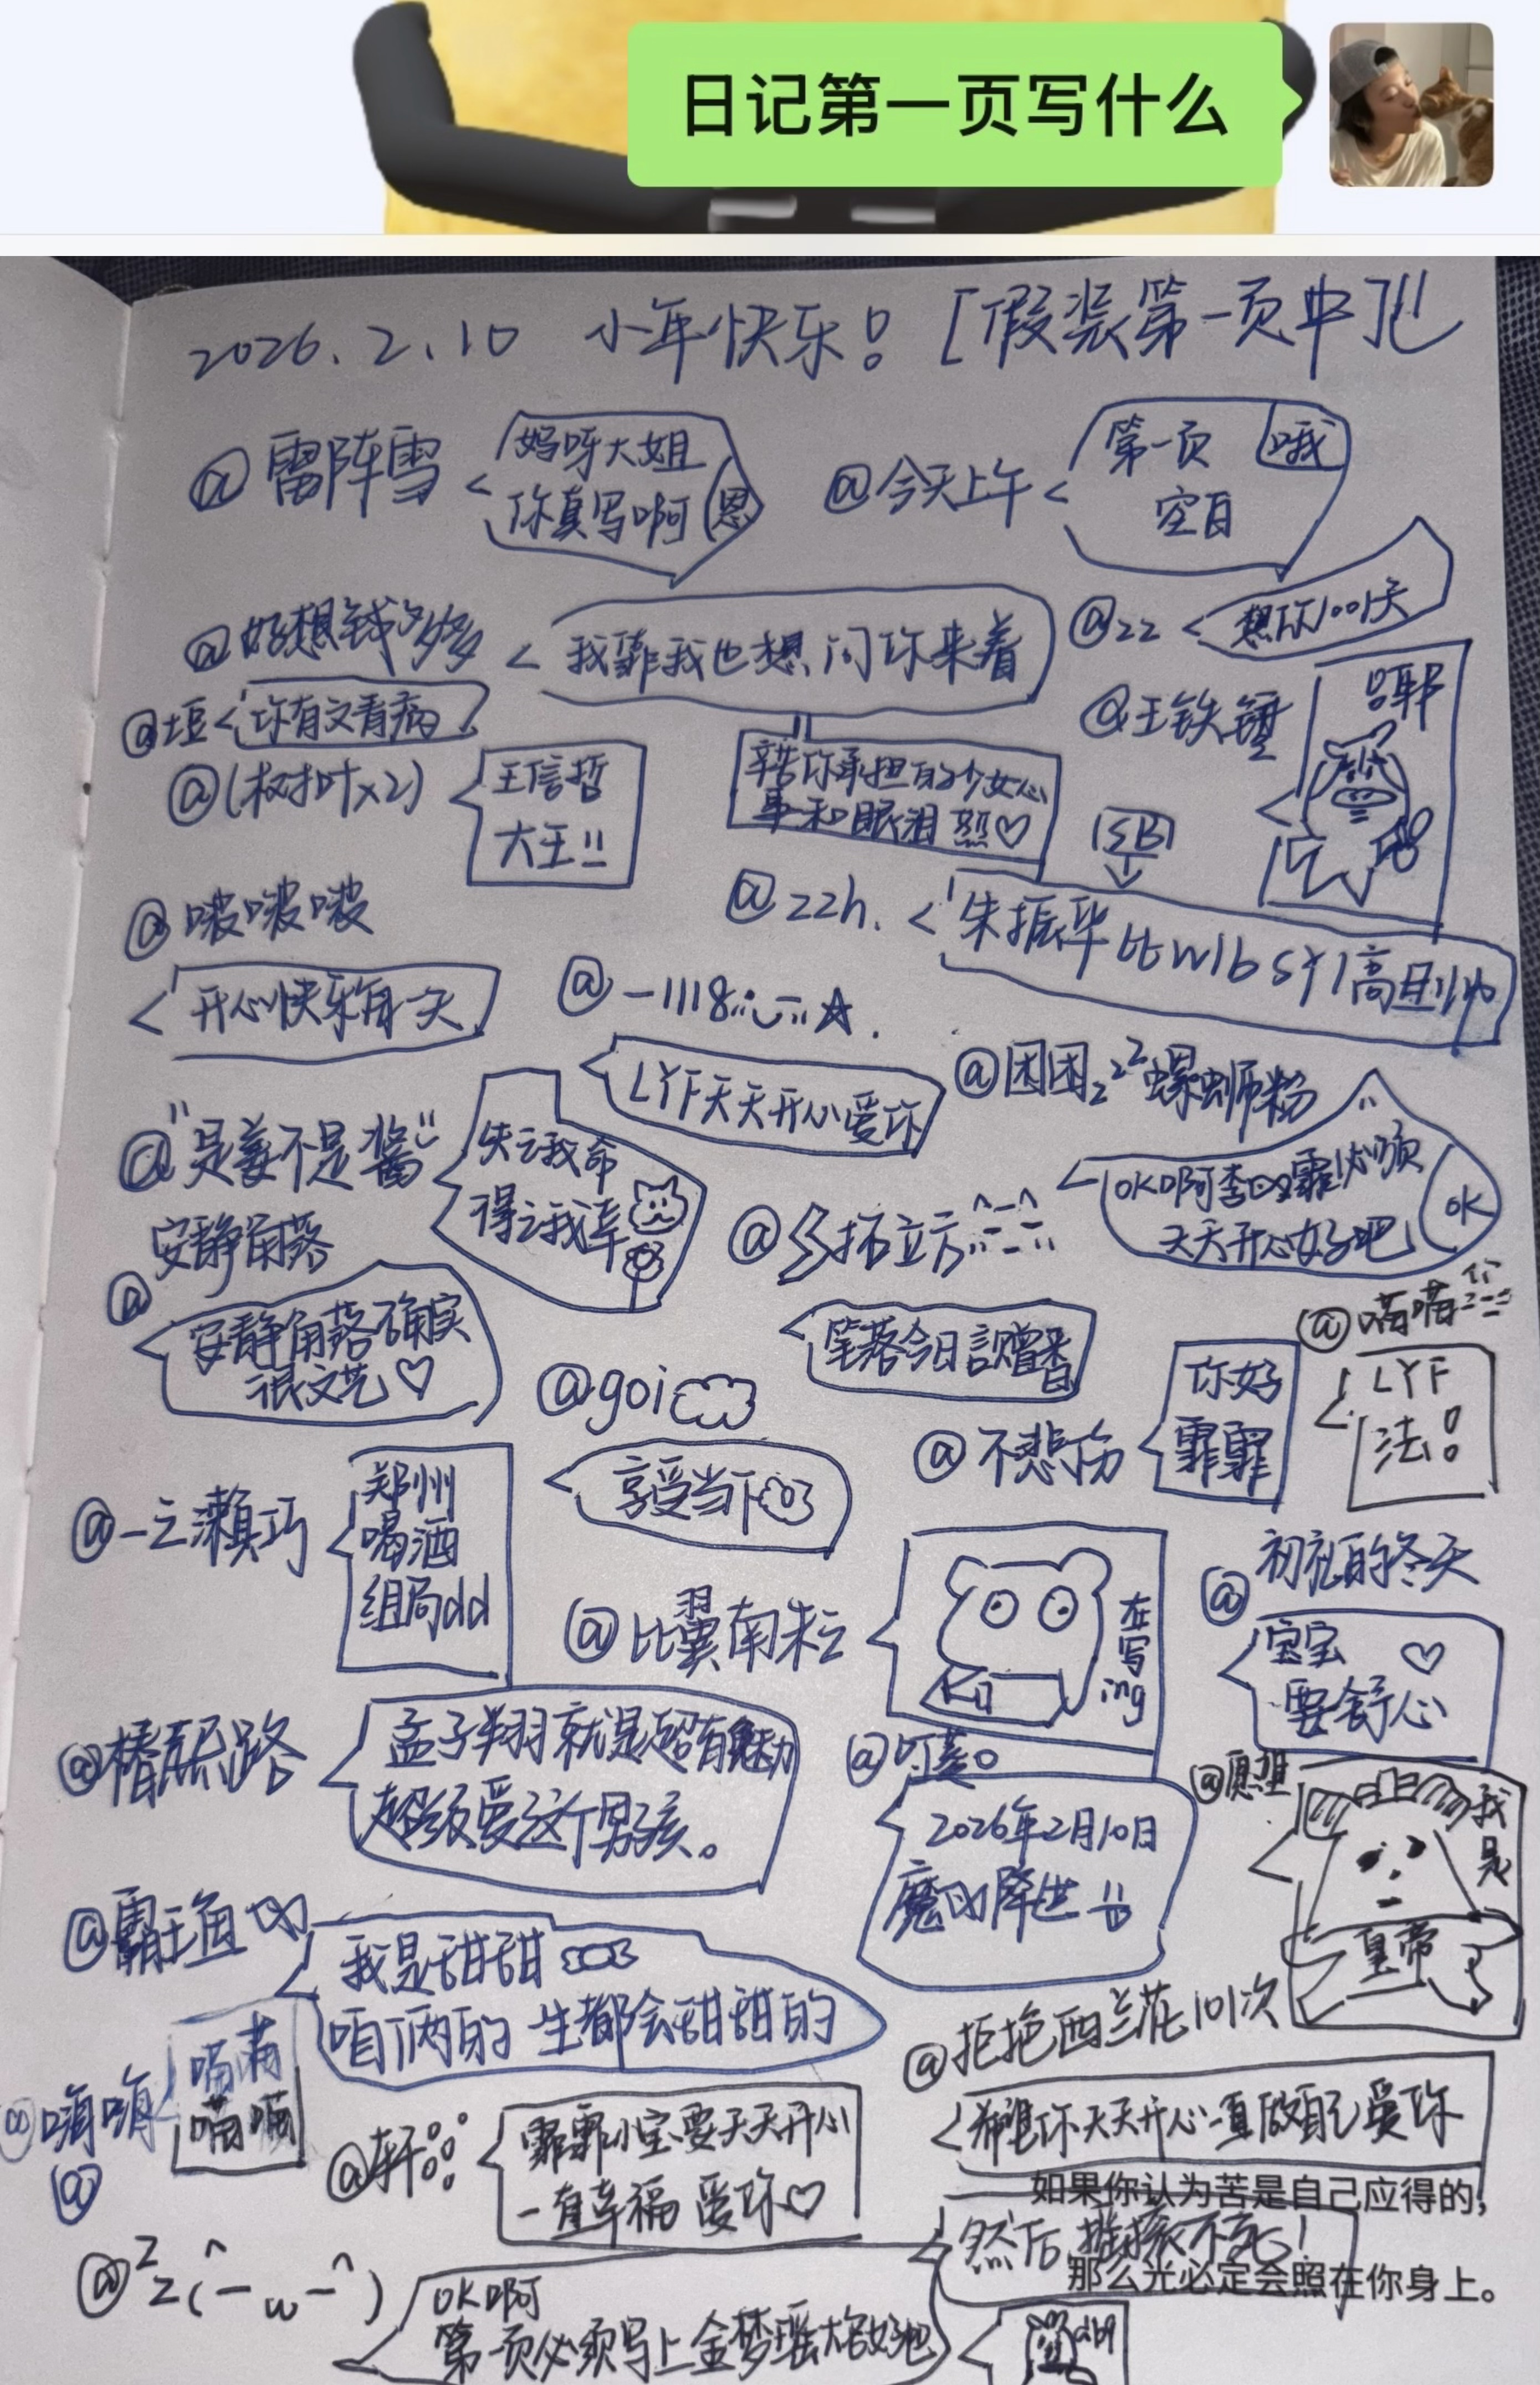 日记第一页写什么
2026.2.10 小年快乐! [假装第一页中]
@雷阵雪
妈呀大姐
你真写啊 恩
@今天上午
第一页 哦
空白
@好想钱多多
我靠我也想问你来着
@22
想你1001天
@土豆
你有文看病
@王铁锤
@(树叶x2)
王信哲
大王!!
辛苦你承担的少女心
事和眼泪
SB
@啵啵啵
开心快乐每一天
@22h.
朱振华比wlbsy1高且帅
@-1118
LYF天天开心爱你
@困困zzz螺蛳粉
OK啊李 霏必须
天天开心好吧
OK
@"是姜不是酱"
失之我命
得之我幸
@ 拓立方
笔落今日言赠 昔日
@安静角落
安静角落确实
很文艺♡
@喵喵
LYF
法!
@goi
享受当下
@不悲伤
你好
霏霏
@一之濑巧
郑州
喝酒
组局dd
@比翼南
在写ing
@初 的冬天
宝宝 ♡
要舒心
@椿熙路
孟子翔就是超有魅力
超级爱这个男孩。
@叮
2026年2月10日
魔 降世!!
@愿
我是
皇帝
@霸王鱼
我是甜甜
咱俩的一生都会甜甜的
@拒绝西兰花101次
希望你天天开心一直做自己爱你
@嗨嗨
喵喵
喵喵
@轩
霏霏小宝要天天开心
一直幸福 爱你♡
如果你认为苦是自己应得的,
然后 不死!
那么光必定会照在你身上。
@zzz(^-w-^)
OK啊
第一页必须写上金梦瑶大名好吧